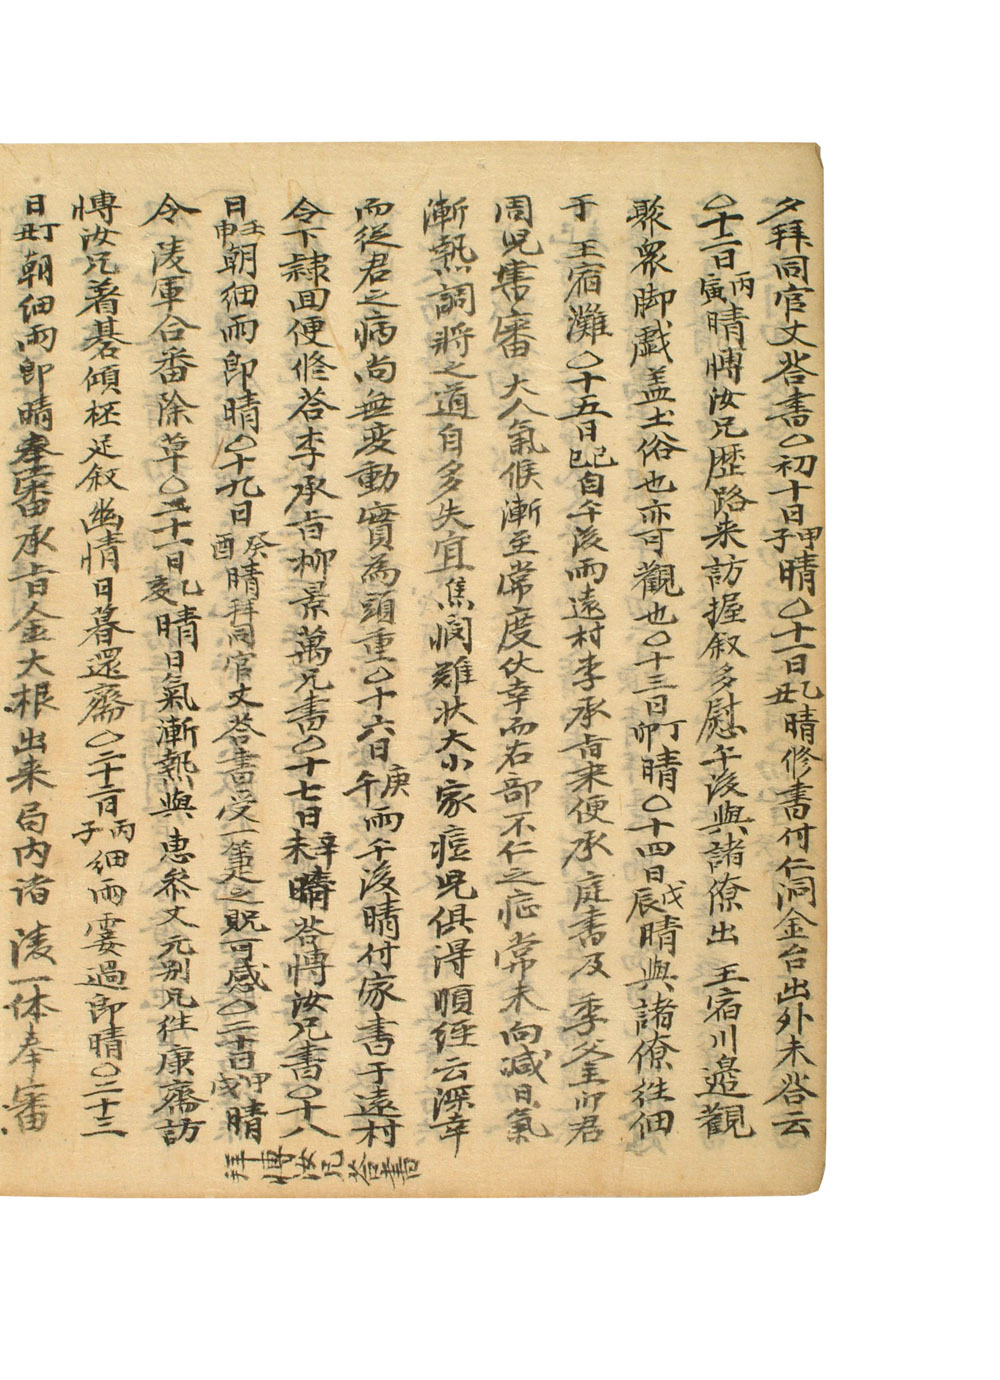 夕拜同官丈答書〇初十日甲子晴〇十一日乙丑晴修書付仁洞金台出外未答云
〇十二日丙寅晴博汝兄歷路来訪握叙多慰午後與諸僚出 王宿川邊觀
聚衆脚戱盖土俗也亦可觀也〇十三日丁卯晴〇十四日戊辰晴與諸僚徃佃
于 王宿灘〇十五日己巳自午後雨遠村李承旨来便承庭書及 季父主卯君
周児書審 大人氣候漸至常度伏幸而右部不仁之症常未向减日氣
漸熱調將之道自多失宜焦悶難狀大小家痘児俱得順經云深幸
而從君之病尚無变動實為頭重〇十六日庚午雨午後晴付家書于遠村
令下隷回便修答李承旨柳景萬兄書〇十七日辛未晴答博汝兄書〇十八
日壬申朝细雨即晴〇十九日癸酉晴拜同官丈答書受一箑之貺可感〇二十日甲戌晴
拜博汝兄答書
令陵軍合番除草〇二十一日乙亥晴日氣漸熱與 惠參丈元别兄徃康齋訪
博汝兄着碁傾柸足叙幽情日暮還齋〇二十二日丙子细雨霎過即晴〇二十三
日丁丑朝细雨即晴奉審承旨金大根出来局内诸 陵一体奉審